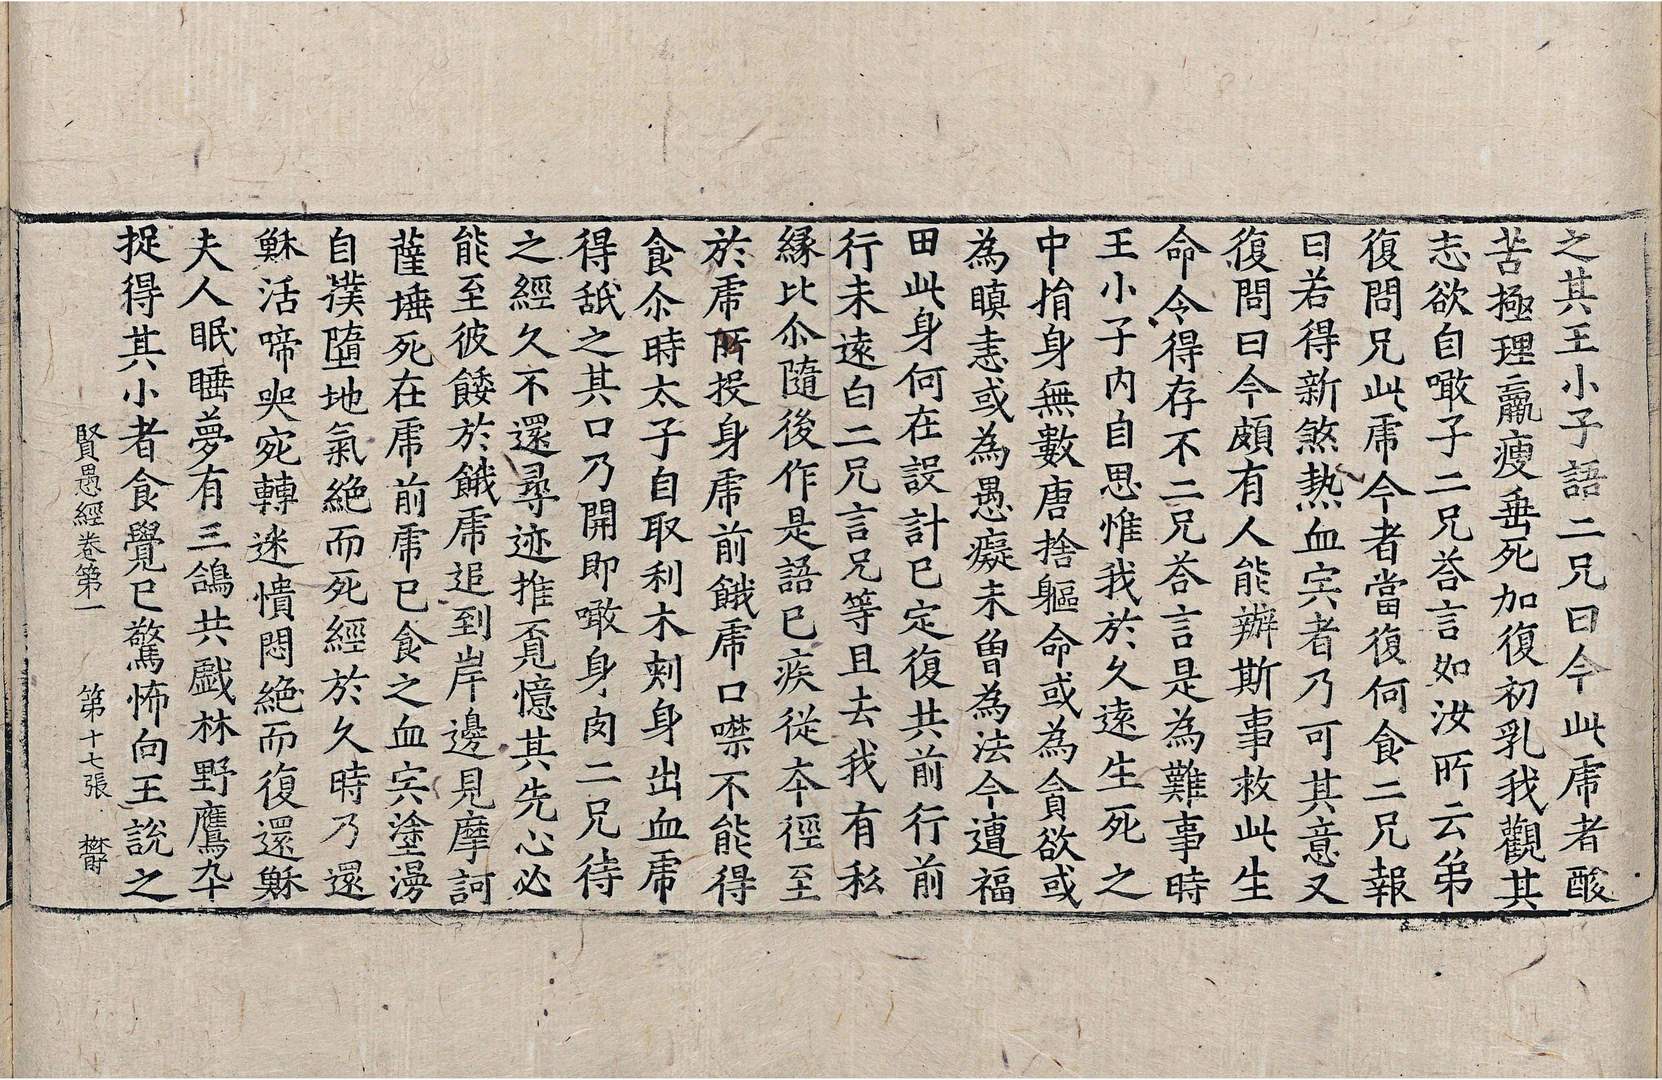 之其王小子語二兄曰今此虎者酸
苦極理羸瘦垂死加復初乳我觀其
志欲自噉子二兄荅言如汝所云弟
復問兄此虎今者當復何食二兄報
曰若得新煞熱血宍者乃可其意又
復問曰今頗有人能辦斯事救此生
命令得存不二兄荅言是為難事時
王小子內自思惟我於久遠生死之
中捎身無數唐捨軀命或為貪欲或
為瞋恚或為愚癡未曾為法今遭福
田此身何在設計已定復共前行前
行未遠白二兄言兄等且去我有私
緣比尒隨後作是語已疾從夲徑至
於虎所投身虎前餓虎口噤不能得
食尒時太子自取利木刺身出血虎
得舐之其口乃開即噉身肉二兄待
之經久不還尋迹推覓憶其先心必
能至彼餧於餓虎追到岸邊見摩訶
薩埵死在虎前虎已食之血宍塗漫
自撲墮地氣絕而死經於久時乃還
穌活啼哭宛轉迷憒悶絕而復還穌
夫人眠睡夢有三鴿共戲林野鷹卒
捉得其小者食覺已驚怖向王說之
賢愚經卷第一 第十七張 欝